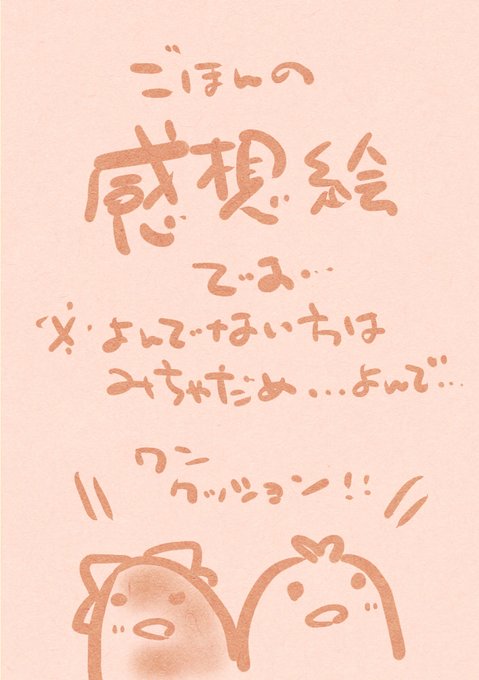 ごほんの
感想絵
です…
※よんでないちは
みちゃだめ...よんで...
ワン
クッション!!